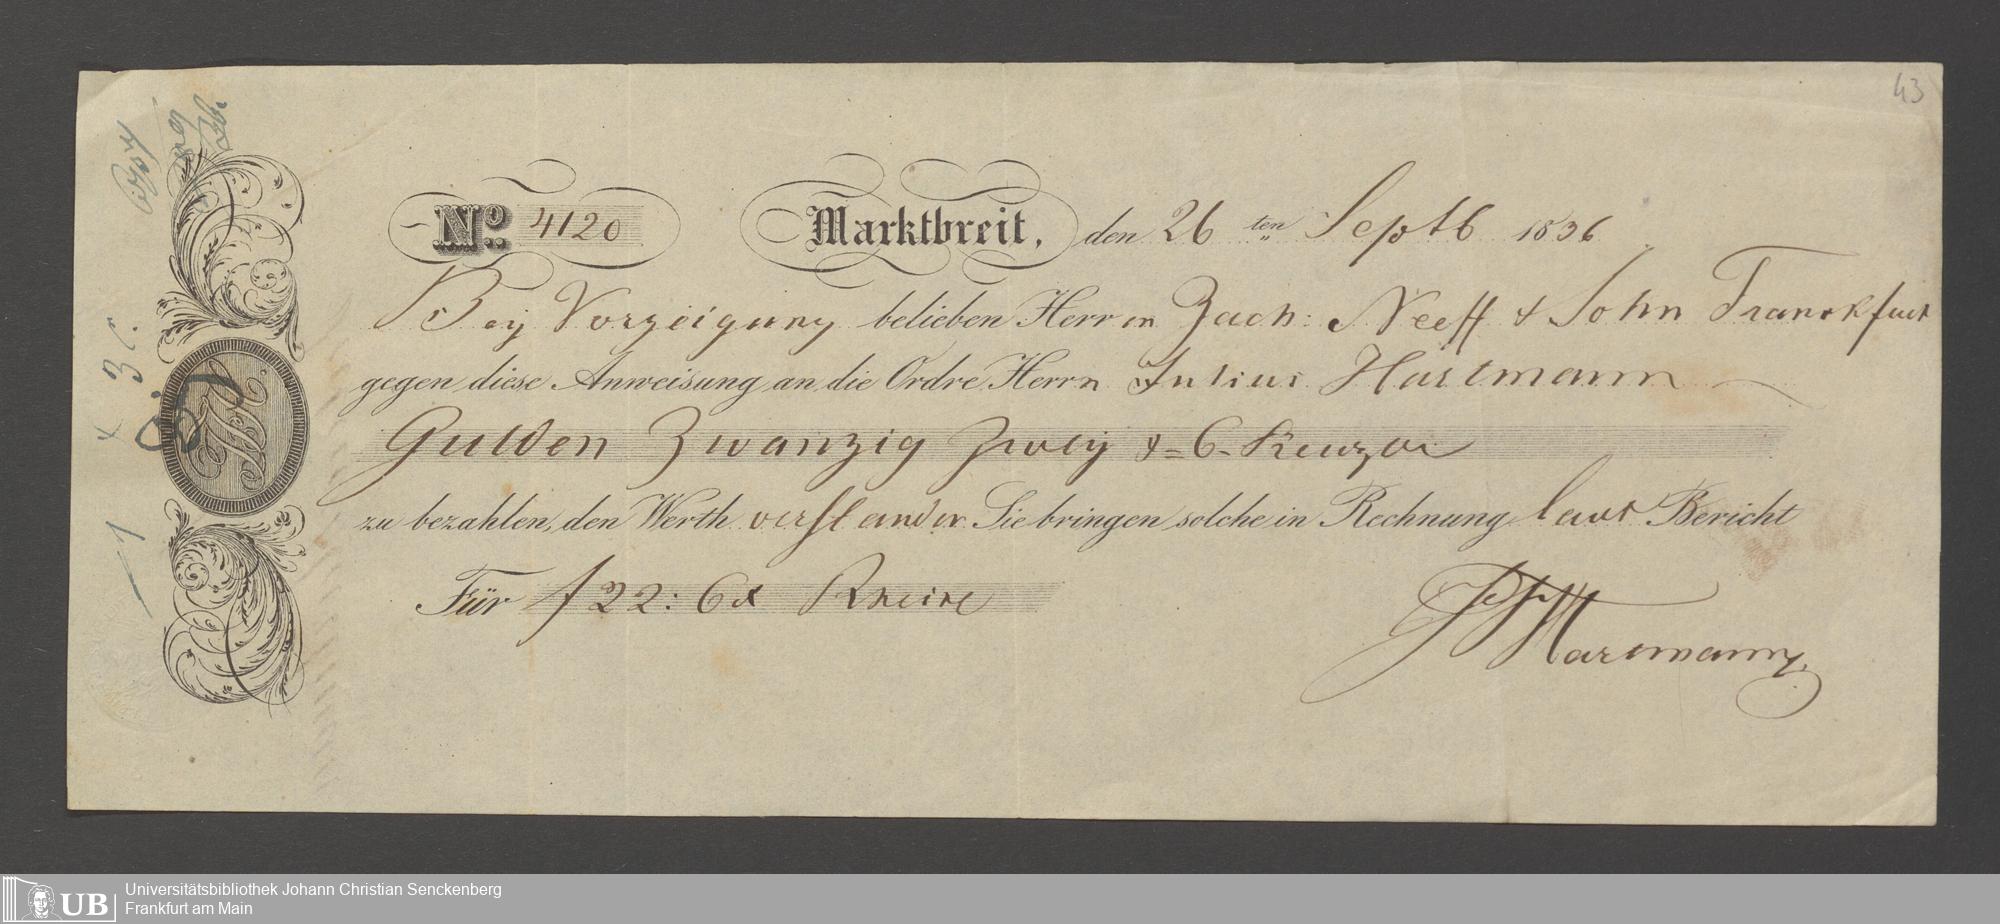 43
No. 4120 Marktbreit, den 26 ten Septb 1836
Bey Vorzeigung belieben Herren Zach: Neeff & Sohn Franckfurt
gegen diese Anweisung an die Ordre Herrn Julius Hartmann
Gulden Zwanzig Zwey & 6 Kreuzer
zu bezahlen, den Werth verstanden Sie bringen solche in Rechnung laut Bericht
Für f 22: 6 x Rheine
Hartmann
Universitätsbibliothek Johann Christian Senckenberg
UB Frankfurt am Main